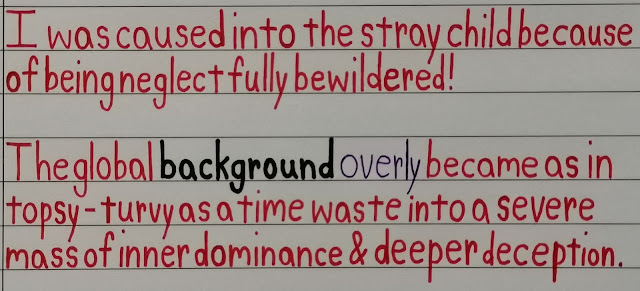 I was caused into the stray child because
of being neglectfully bewildered!
The global background overly became as in
topsy-turvy as a time waste into a severe
mass of inner dominance & deeper deception.